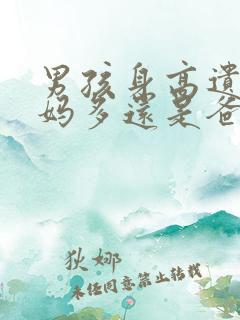 男孩身高遗
妈多还是爸
狄娜
未经同意禁止转载